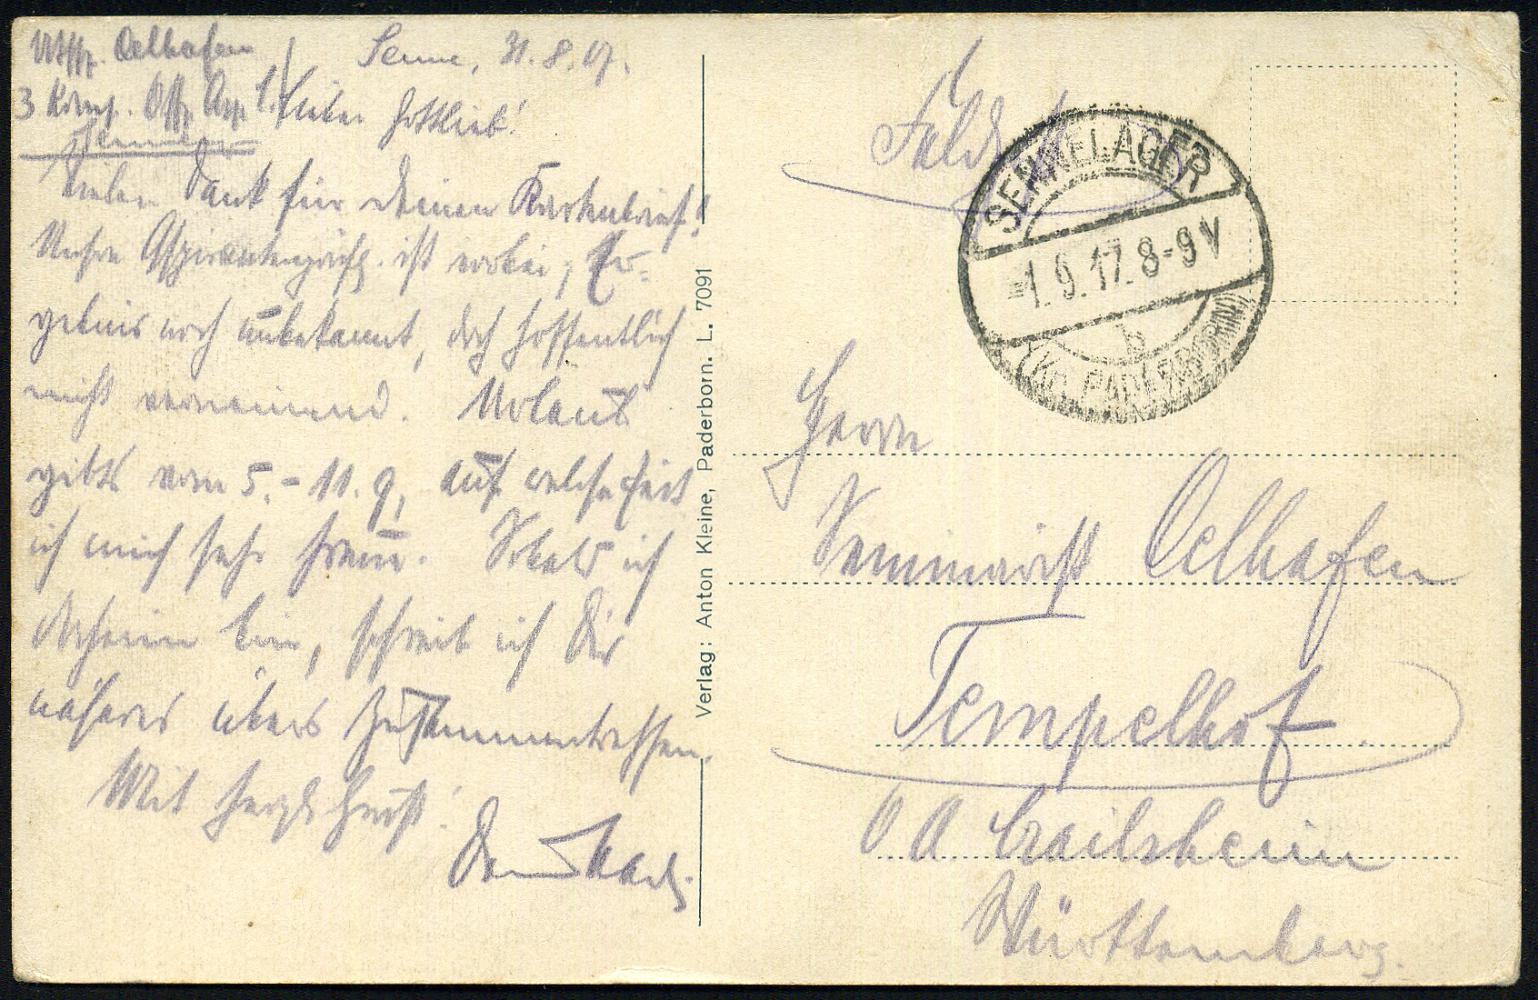 Uffz. Oelhafen
3 Komp. Offz. Asp.
Senne
Senne, 31.8.17.
Lieber Gottlieb!
Vielen Dank für Deinen Kartenbrief!
Unsre Aspirantenprüfg. ist vorbei; Er-
gebnis noch unbekannt, doch hoffentlich
nicht verneinend. Urlaub
gibts vom 5.-11.9, auf welche Zeit
ich mich sehr freue. Sobald ich
daheim bin, schreib ich Dir
näheres übers Zusammentreffen.
Mit herzl. Gruß!
Dein
Verlag: Anton Kleine, Paderborn. L. 7091
SENNELAGER
-1.9.17. 8-9 V
b
(KR. PADERBORN)
Herrn
Seminarist Oelhafen
Tempelhof
O A Crailsheim
Württemberg.